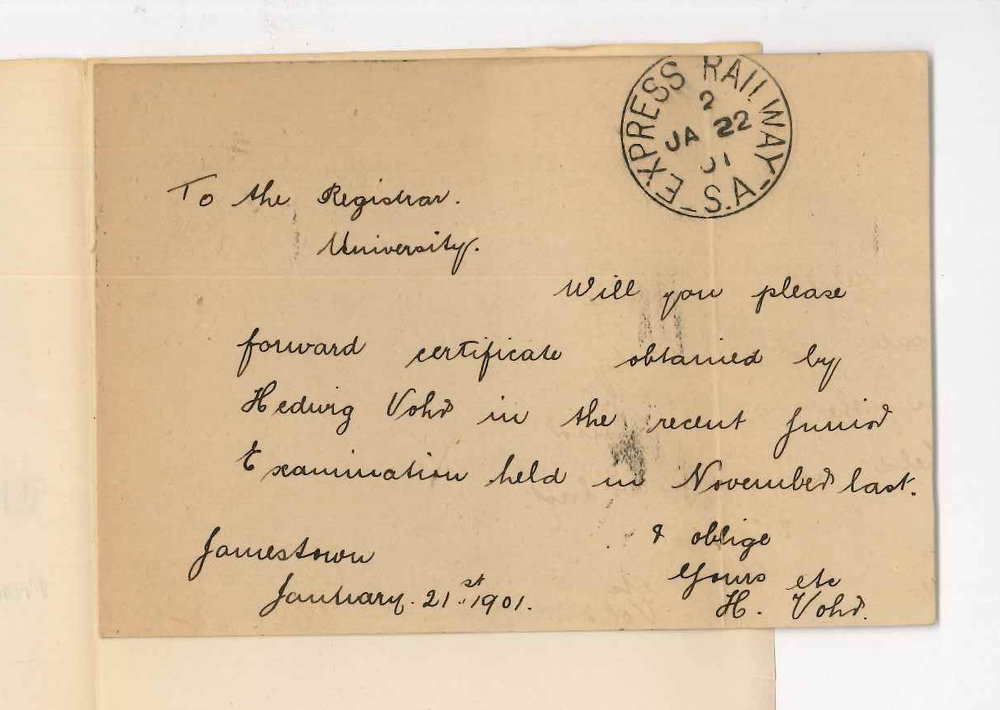 EXPRESS RAILWAY - S.A. -
2
JA 22
01
To the Registrar.
University.
Will you please
forward certificate obtained by
Hedwig Vohr in the recent Junior
Examination held in November last.
& oblige
Yours etc
H. Vohr.
Jamestown
January. 21st 1901.